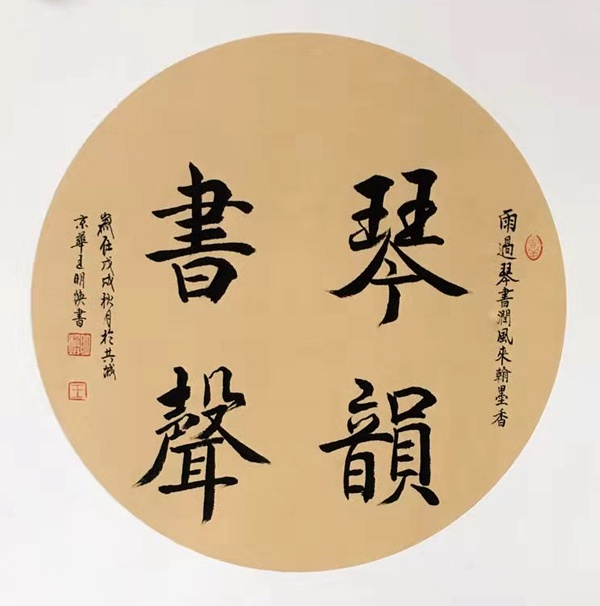 雨過琴書潤風來翰墨香
琴韻
書聲
歲在戊戌秋月於共城
京華王明俠書